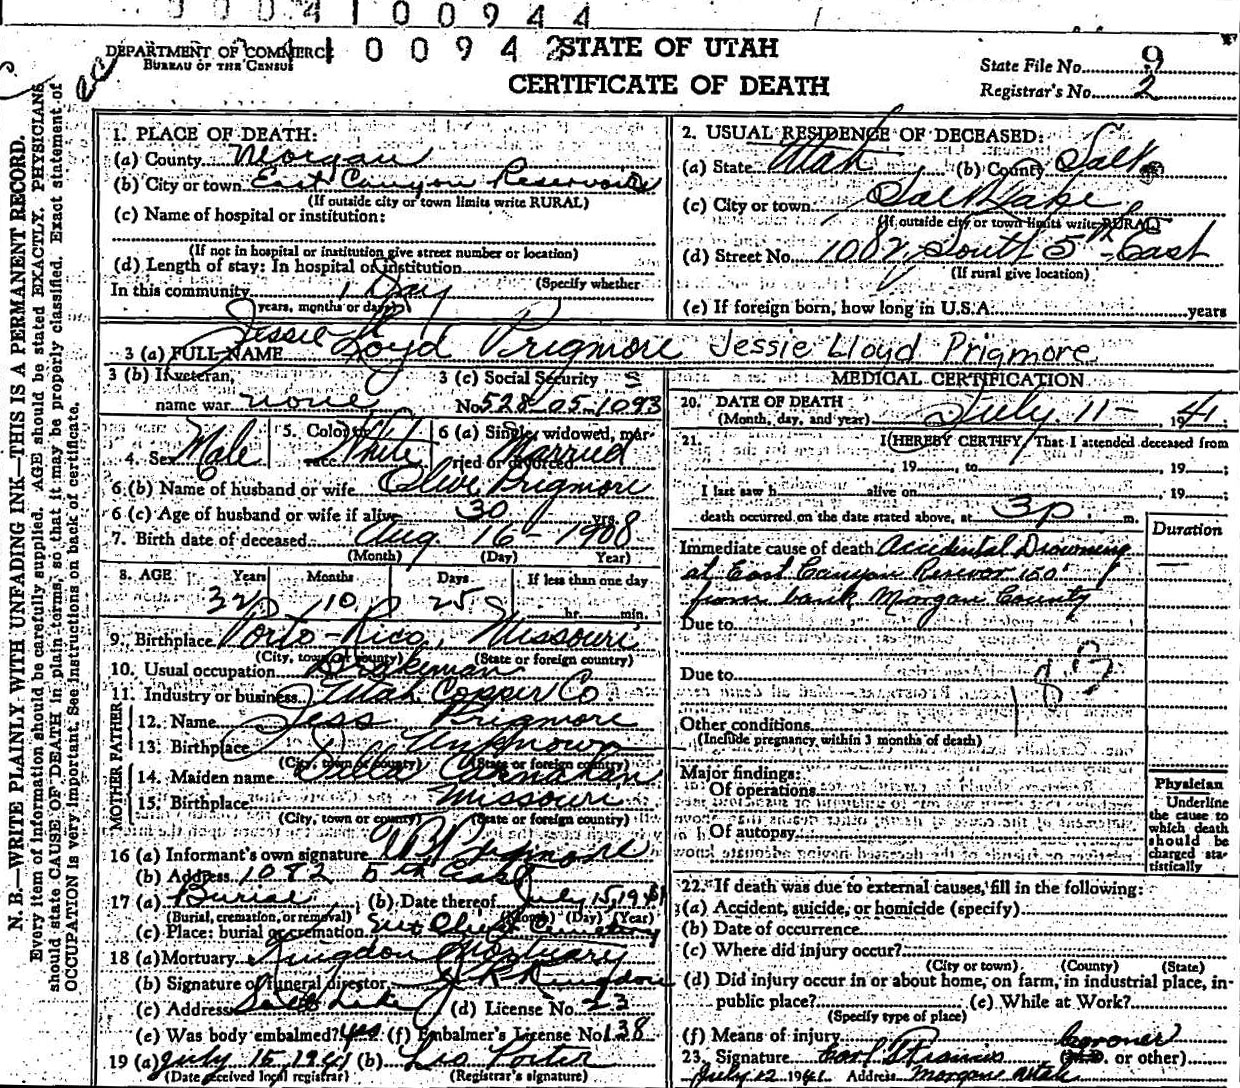 00041 00944
DEPARTMENT OF COMMERCE
BUREAU OF THE CENSUS
1 0 0 9 4 2
STATE OF UTAH
CERTIFICATE OF DEATH
State File No. 9
Registrar's No. 2
N. B.—WRITE PLAINLY WITH UNFADING INK—THIS IS A PERMANENT RECORD.
Every item of information should be carefully supplied. AGE should be stated EXACTLY. PHYSICIANS
should state CAUSE OF DEATH in plain terms, so that it may be properly classified. Exact statement of
OCCUPATION is very important. See instructions on back of certificate.
1. PLACE OF DEATH:
(a) County Morgan
(b) City or town East Canyon Reservoir
(If outside city or town limits write RURAL)
(c) Name of hospital or institution:
(If not in hospital or institution give street number or location)
(d) Length of stay: In hospital or institution
(Specify whether
In this community 1 Day
years, months or days)
2. USUAL RESIDENCE OF DECEASED:
(a) State Utah (b) County Salt
(c) City or town Salt Lake
(If outside city or town limits write RURAL)
(d) Street No. 1082 South 5th East
(If rural give location)
(e) If foreign born, how long in U.S.A. years
3 (a) FULL NAME Jessie Loyd Prigmore Jessie Lloyd Prigmore
3 (b) If veteran,
name war none
3 (c) Social Security
No. 528-05-1093
4. Sex Male
5. Color or race White
6 (a) Single, widowed, married or divorced Married
6 (b) Name of husband or wife Olive Prigmore
6 (c) Age of husband or wife if alive 30 yrs.
7. Birth date of deceased Aug. 16 - 1908
(Month) (Day) Year)
8. AGE Years Months Days If less than one day
32 10 25 hr. min.
9. Birthplace Porto-Rico, Missouri
(City, town or county) (State or foreign country)
10. Usual occupation Brakeman
11. Industry or business Utah Copper Co
FATHER
12. Name Jess Prigmore
13. Birthplace Unknown
(City, town or county) (State or foreign country)
MOTHER
14. Maiden name Della Carnahan
15. Birthplace Missouri
(City, town or county) (State or foreign country)
16 (a) Informant's own signature Prigmore
(b) Address 1082 5th East
17 (a) Burial (b) Date thereof July 15, 1941
(Burial, cremation, or removal) (Month) (Day) (Year)
(c) Place: burial or cremation Mt Olivet Cemetery
18 (a) Mortuary Kingdon Mortuary
(b) Signature of funeral director Kingdon
(c) Address Salt Lake (d) License No. 23
(e) Was body embalmed? yes (f) Embalmer's License No. 138
19 (a) July 15, 1941 (b) Porter
(Date received local registrar) (Registrar's signature)
MEDICAL CERTIFICATION
20. DATE OF DEATH
(Month, day, and year) July 11- 1941
21. I HEREBY CERTIFY, That I attended deceased from
, 19 , to , 19 ;
I last saw h alive on , 19 ;
death occurred on the date stated above, at 3 p. m.
Duration
Immediate cause of death Accidental Drowning
at East Canyon Resevor 150'
from bank Morgan County
Due to
Due to
183
Other conditions
(Include pregnancy within 3 months of death)
Major findings:
Of operations
Of autopsy
Physician
Underline
the cause to
which death
should be
charged sta-
tistically
22. If death was due to external causes, fill in the following:
(a) Accident, suicide, or homicide (specify)
(b) Date of occurrence
(c) Where did injury occur?
(City or town) (County) (State)
(d) Did injury occur in or about home, on farm, in industrial place, in
public place? (e) While at Work?
(Specify type of place)
(f) Means of injury
Coroner
23. Signature (M.D. or other)
July 12 1941 Address Morgan Utah